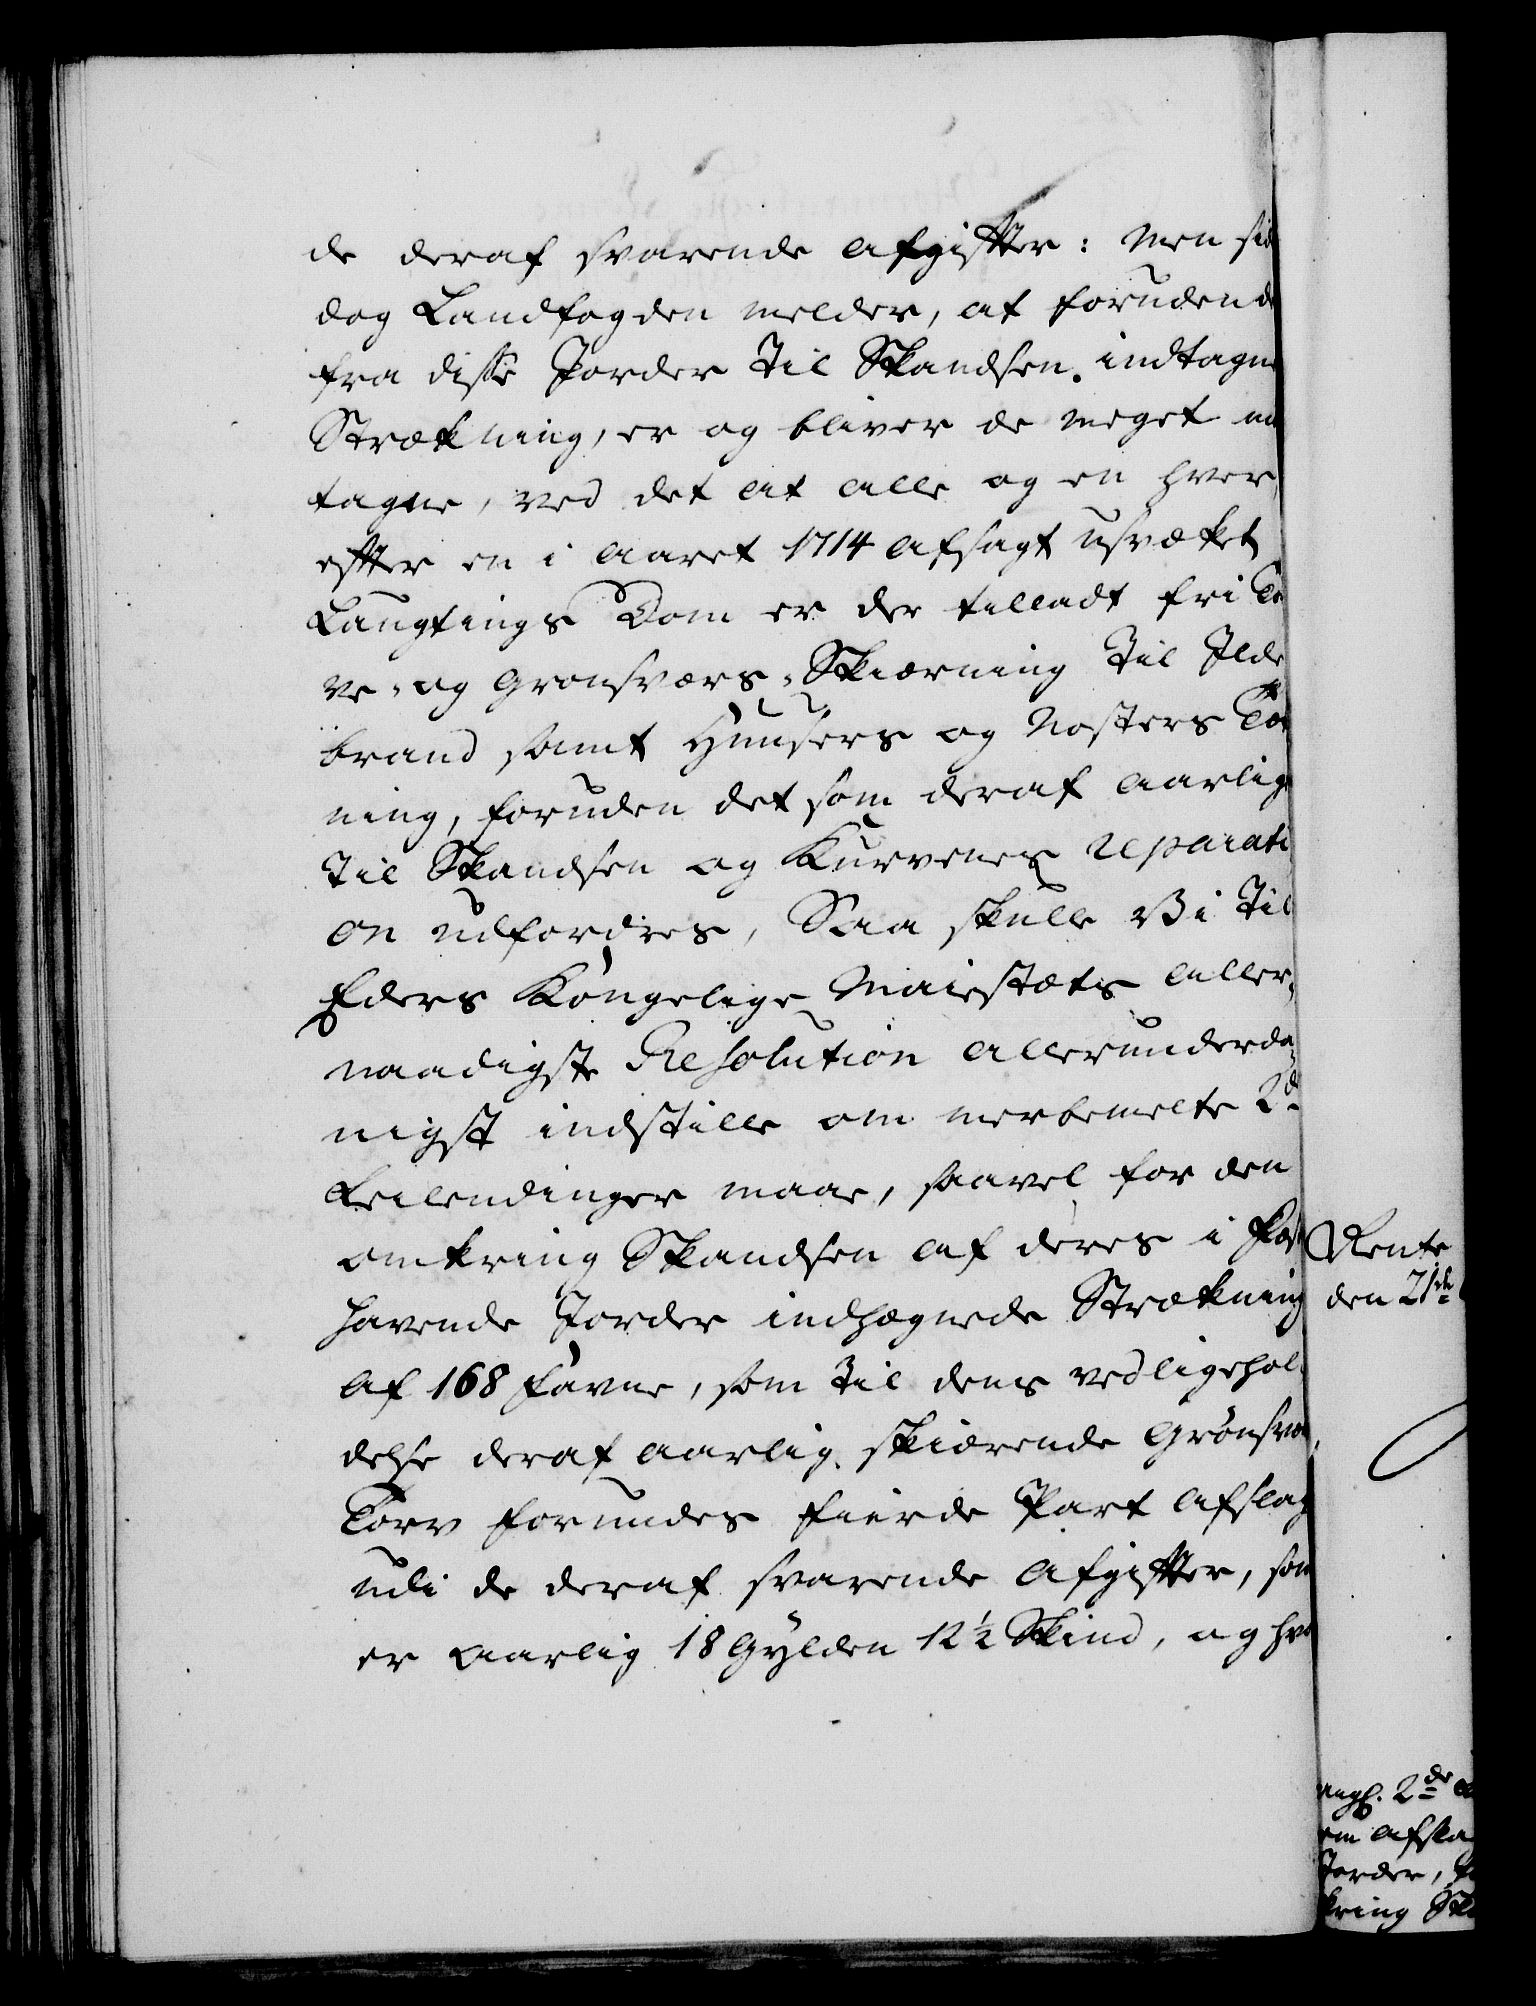 de deraf svarende Afgifter: Men si
dog Landfogden melder, at foruden d
fra disse Jorder til Skandsen indtagne
Strækning, er og bliver de meget
tagne, ved det at alle og en hver,
efter en i Aaret 1714 afsagt usvækket
Laugtings Dom er der tilladt fri To
ve- og Grønsværs-Skiærning til Ilde
brand samt Huusers og Nøsters Tæ
ning, foruden det som deraf aarlig
til Skandsen og Kurvenes Reparati
on udfordres, Saa skulle Vi til
Eders Kongelige Maiestæts aller-
naadigste Resolution allerunderda-
nigst indstille om merbemelte 2de
Leilendinger maae, saavel for den
omkring Skandsen af deres i Fæste
havende Jorder indhægnede Strækning
af 168 Favne, som til dens vedligehol-
delse deraf aarlig skiærende Grønsvæ
Torv forundes fierde Part Afslag
udi de deraf svarende Afgifter, som
er aarlig 18 Gylden 12½ Skind, og hv
Rente
den 21de
angl. 2de
om Afsla
Jorder,
kring Sk